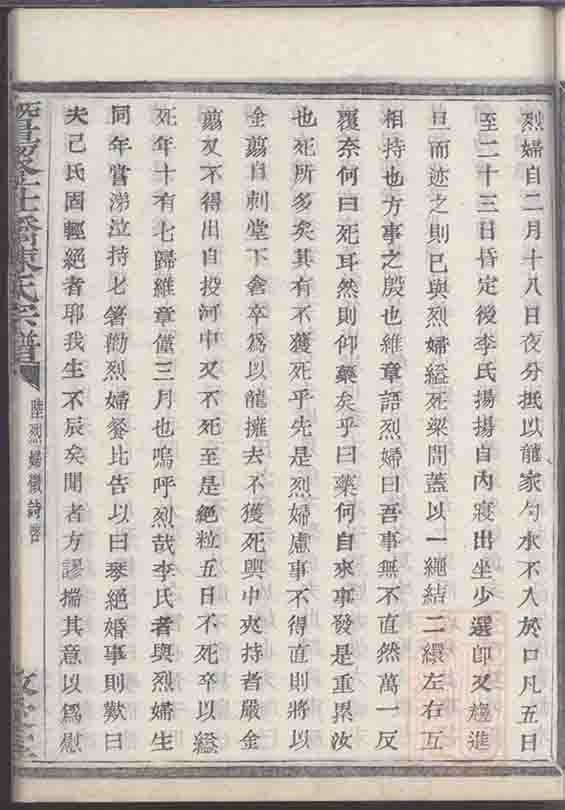 烈婦自二月十八日夜分抵以龍家勺水不入於口凡五日
至二十三日昏定後李氏揚揚自內寢出坐少選卽又趨進
旦而迹之則已與烈婦縊死梁間蓋以一繩結二繯左右互
相持也方事之殷也維章語烈婦曰吾事無不直然萬一反
覆奈何曰死耳然則仰藥矣乎曰藥何自來事發是重累汝
也死所多矣其有不獲死乎先是烈婦慮事不得直則將以
金翦自刺堂下會卒爲以龍擁去不獲死輿中夾持者嚴金
翦又不得出自投河中又不死至是絕粒五日不死卒以縊
死年十有七歸維章僅三月也嗚呼烈哉李氏者與烈婦生
同年嘗涕泣持匕箸勸烈婦餐比告以曰琴絕婚事則歎曰
夫己氏固輕絕者耶我生不辰矣聞者方謬揣其意以爲慰
橋陳氏宗譜
陸烈婦徵詩啓